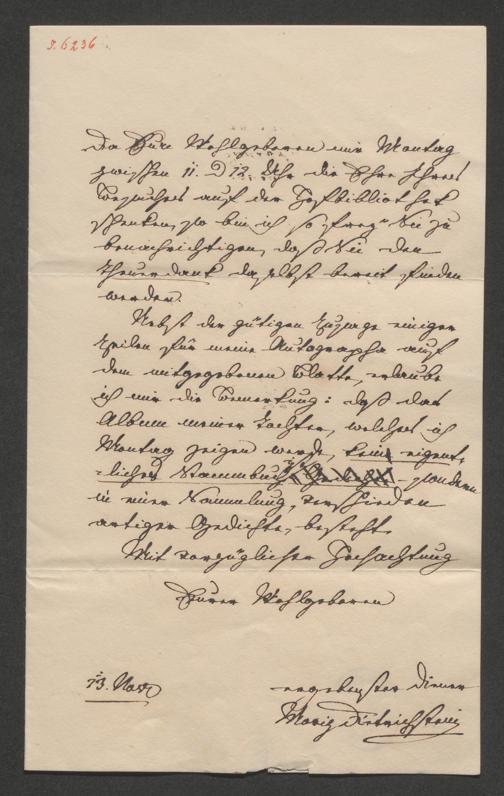 S. 6236
Da Eure Wohlgeboren mir Montag
zwischen 11 & 12 Uhr die Ehre Ihres
Besuches auf der Hofbibliothek
schenken, so bin ich so frey Sie zu
benachrichtigen, daß Sie den
Theuerdank daselbst bereit finden
werden.
Nebst der gütigen Zusage einiger
Zeilen für meine Autographa auf
dem mitgegebenen Blatte, erlaube
ich mir die Bemerkung: daß das
Album meiner Tochter, welches ich
Montag zeigen werde, kein eigent-
liches Stammbuch - sondern
in einer Sammlung, verschieden
artiger Gedichte, besteht.
Mit vorzüglicher Hochachtung
Eurer Wohlgeboren
13. Nov
ergebenster Diener
Moriz Dietrichstein